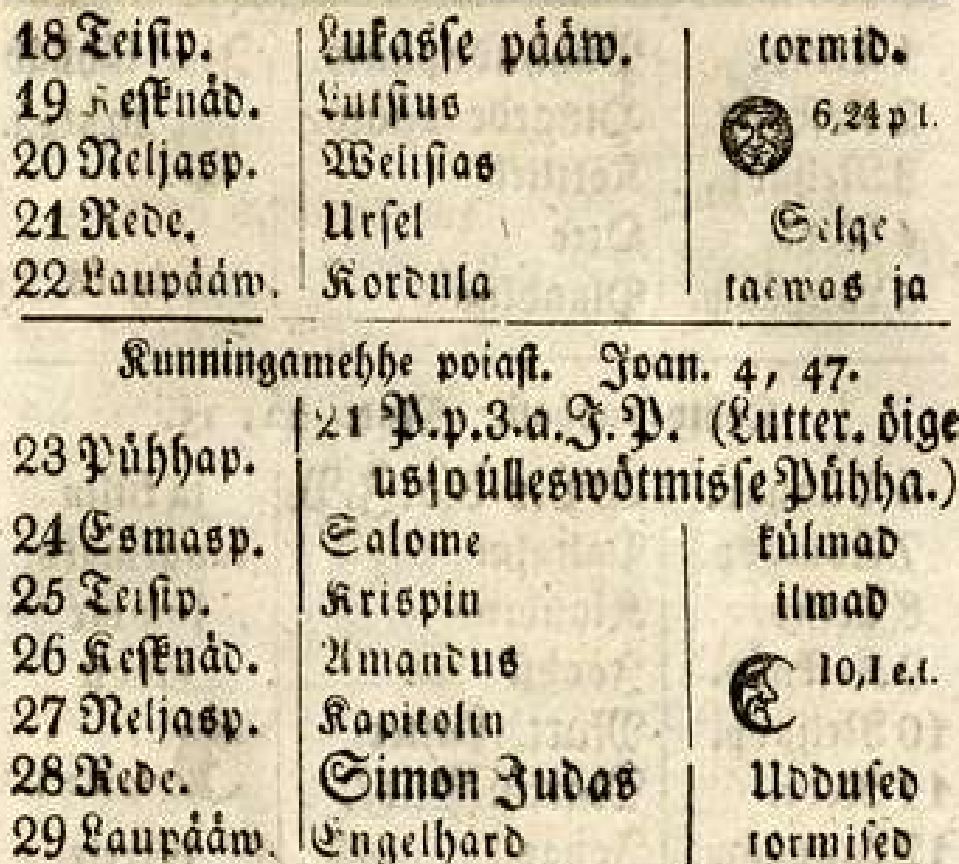 18 Teisip. Lukasse pääw. tormid.
19 Kesknäd. Lutsius 6,24 p l.
20 Neljasp. Welisias
21 Rede. Ursel Selge
22 Laupääw. Kordula taewas ja
Kunningamehhe poiast. Joan. 4, 47.
23 Pühhap. 21 P.p.3.a.J.P. (Lutter. öige
usso ülleswötmisse Pühha.)
24 Esmasp. Salome külmad
25 Teisip. Krispin ilmad
26 Kesknäd. Amandus 10,1 e.l.
27 Neljasp. Kapitolin
28 Rede. Simon Judas Uddused
29 Laupääw. Engelhard tormised